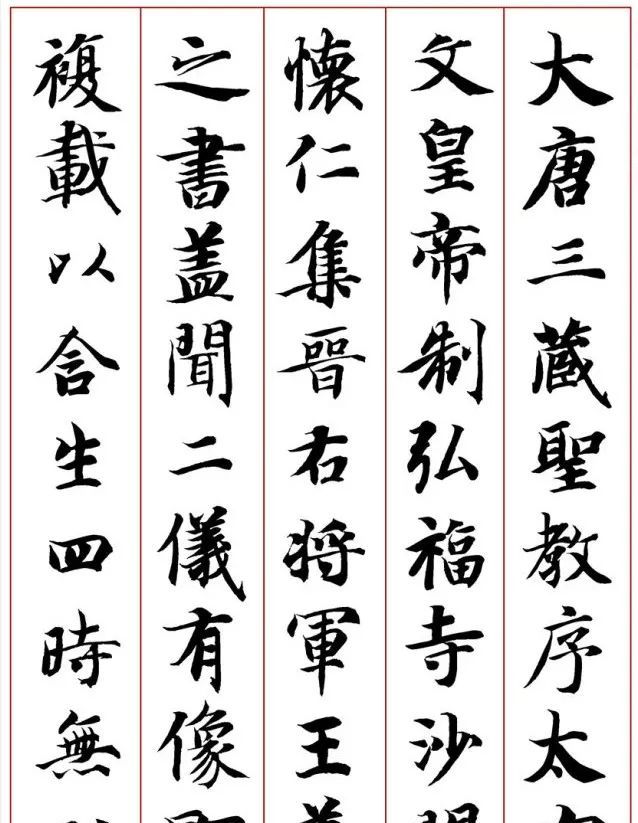 大唐三藏聖教序太
文皇帝制弘福寺沙
懷仁集晉右將軍王
之書蓋聞二儀有像
覆載以含生四時無